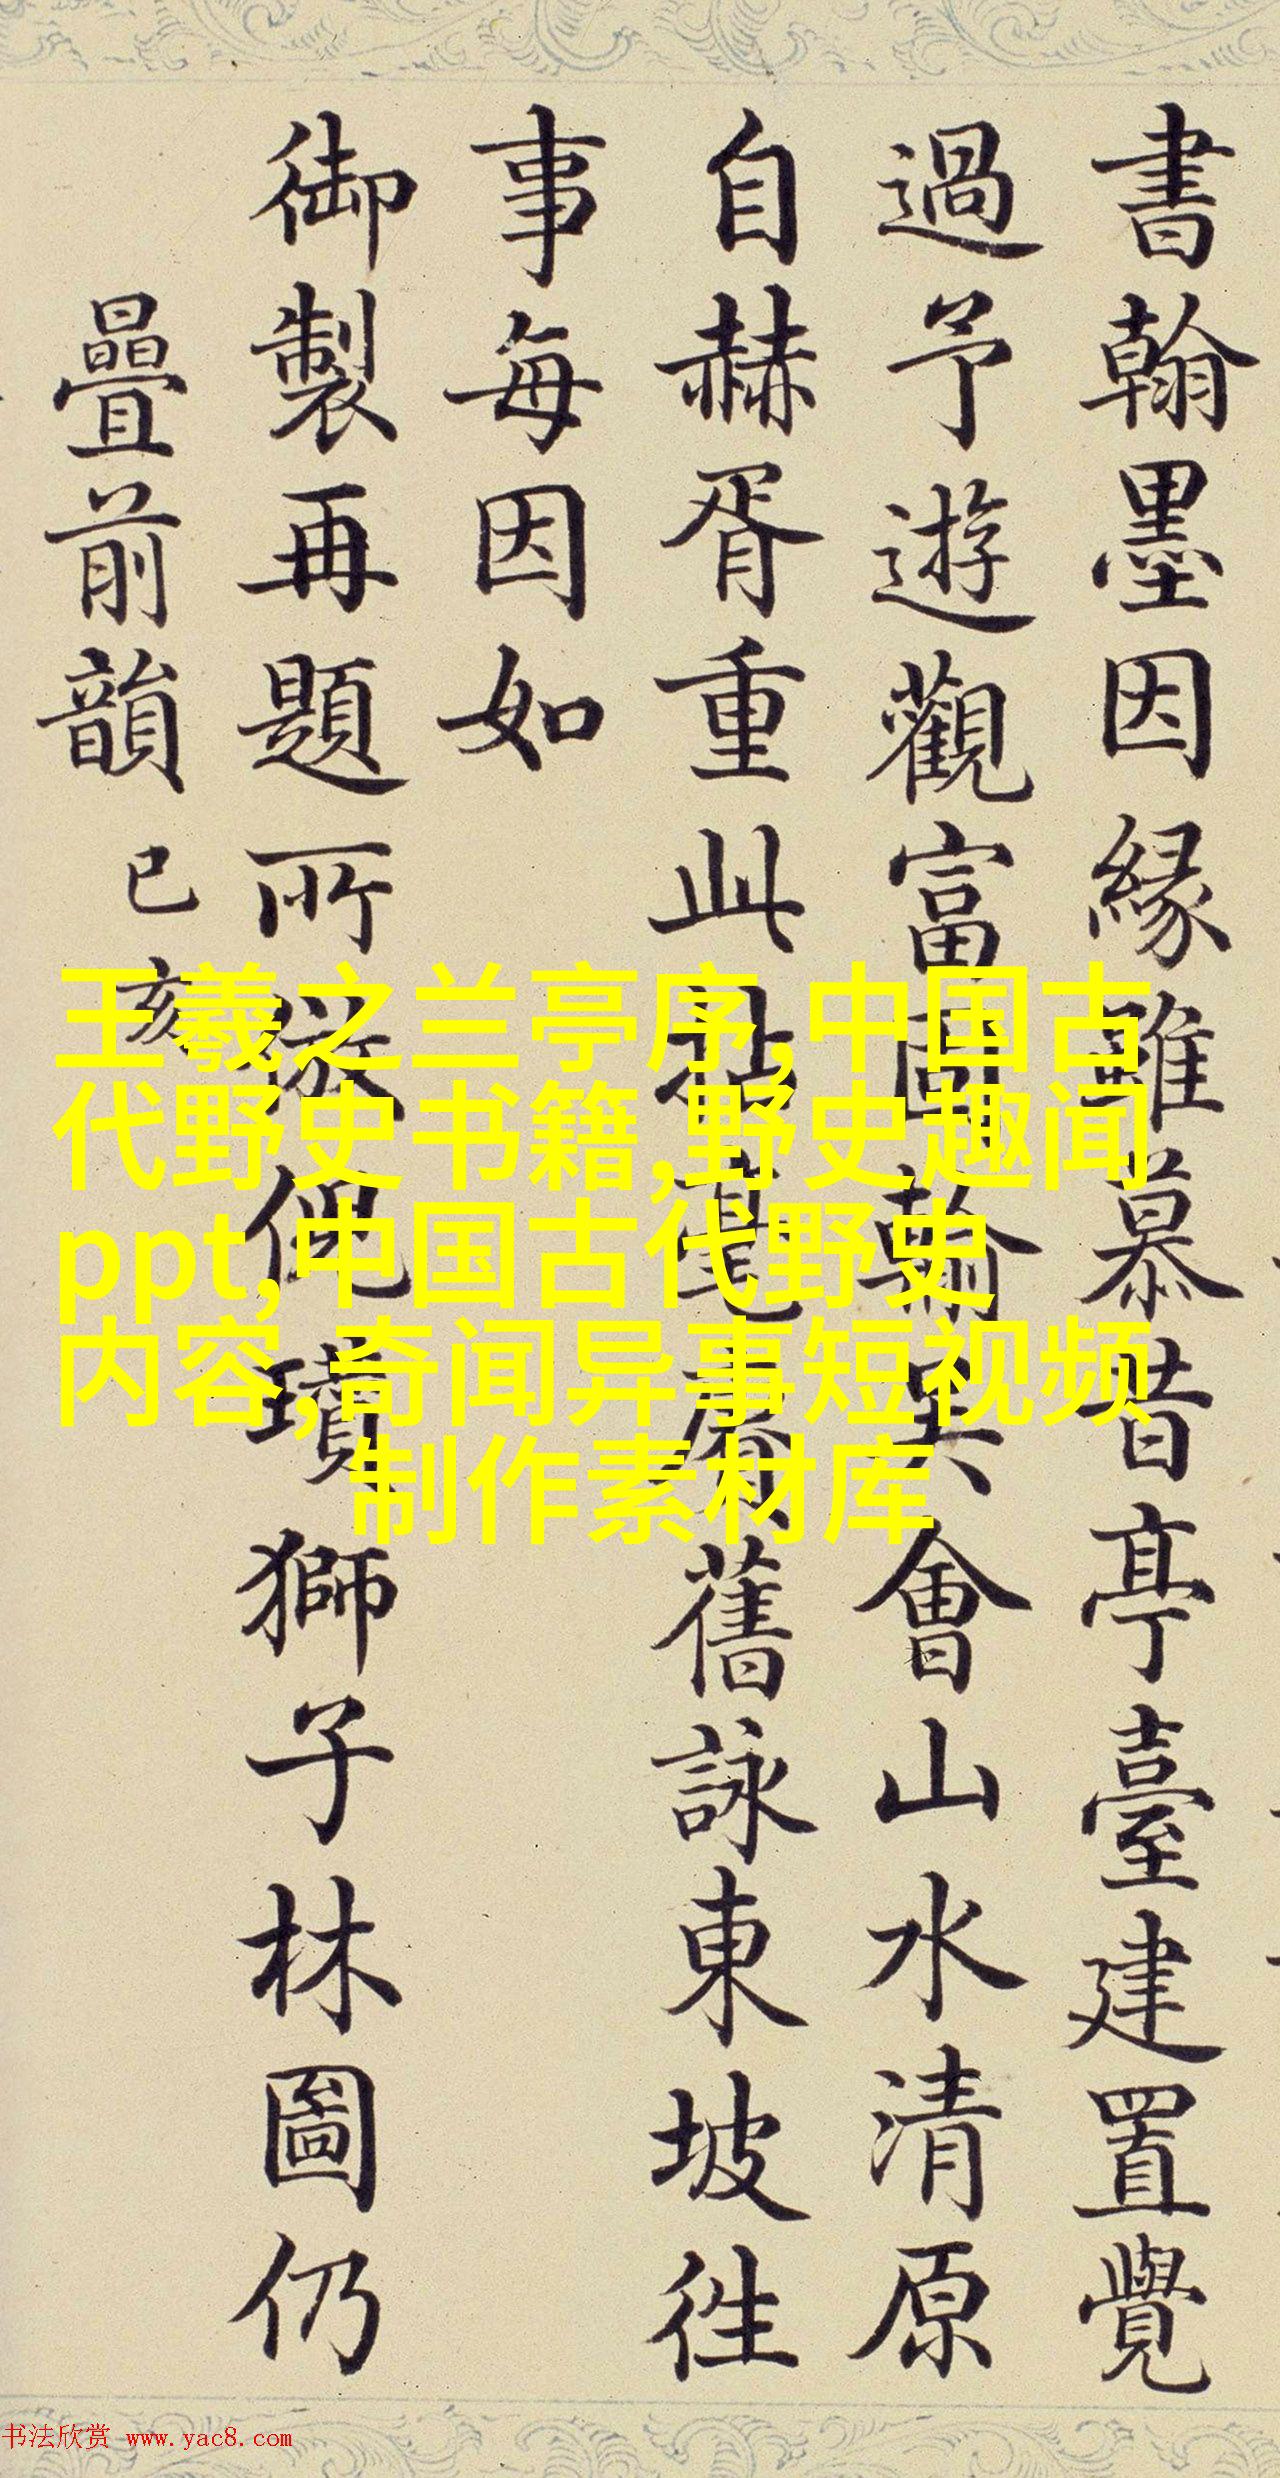 書翰墨因緣雖慕昔亭臺建置覺
過予遊觀富翰會山水清原
自赫胥重此拈毫賡舊詠東坡徃
事每因如
御製再題所倣倪瓚獅子林圖仍
疊前韻 已亥
王羲之兰亭序,中国古
代野史书籍,野史趣闻
ppt,中国古代野史
内容,奇闻异事短视频
制作素材库
书法欣赏 www.yac8.com